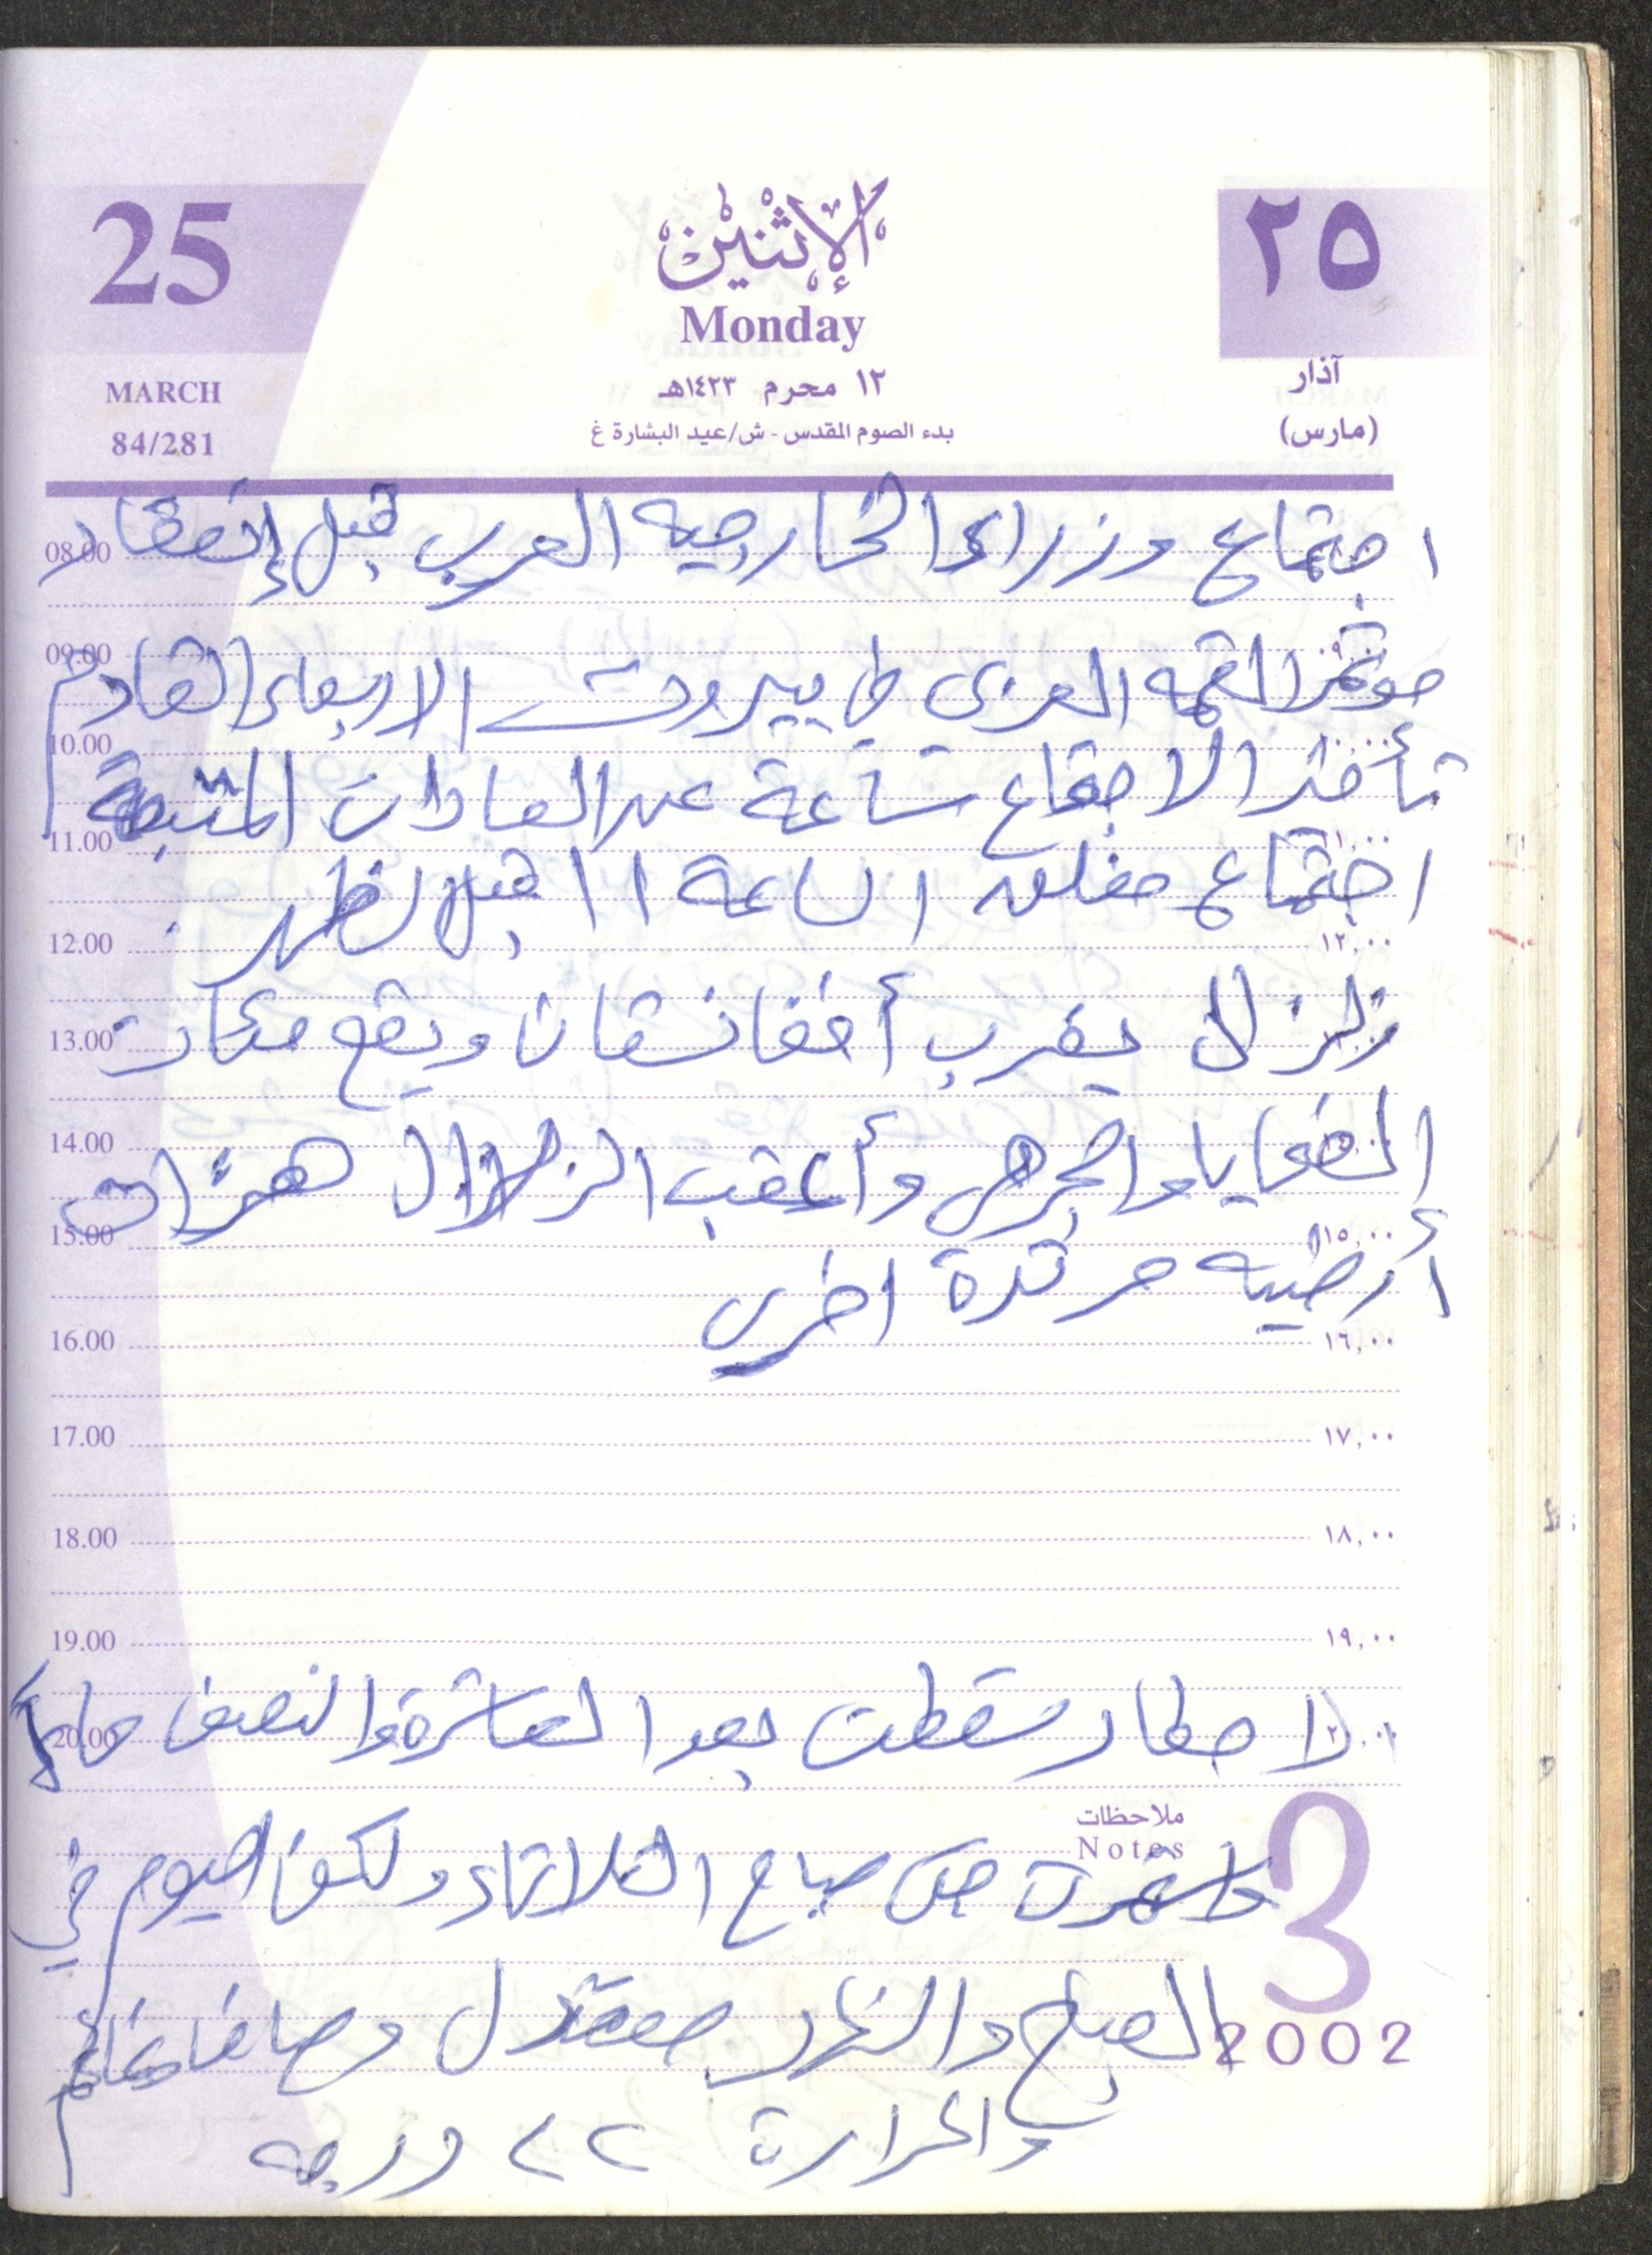 25
الإثْنَيْن
٢٥
Monday
MARCH
١٢ محرم ١٤٢٣هـ
آذار
84/281
بدء الصوم المقدس - ش/عيد البشارة غ
(مارس)
اجتماع وزراء الخارجيه العرب قبل إنعقاد
08.00
مؤتمر القمه العربى في بيروت الاربعاء القادم
09.00
10.00
تأخر الاجتماع ساعة عن العادات المتبعة
11.00
اجتماع مغلق الساعة ١١ قبل الظهر .
12.00 ١٢,٠٠
زلزال يضرب أفغانستان ويقع مئات
13.00
الضحايا والجرحى وأعقب الزلزال هزات
14.00
15.00 ١٥,٠٠
أرضيه مرتدة اخرى
16.00 ١٦,٠٠
17.00 ١٧,٠٠
18.00 ١٨,٠٠
19.00 ١٩,٠٠
الامطار سقطت بعد العاشرة والنصف
20.00
ملاحظات
Notes
واستمرت حتى صباح الثلاثاء ولكن اليوم في
الصباح والنهار معتدل وصافا غائم
3
2002
والحرارة ٢٢ درجه